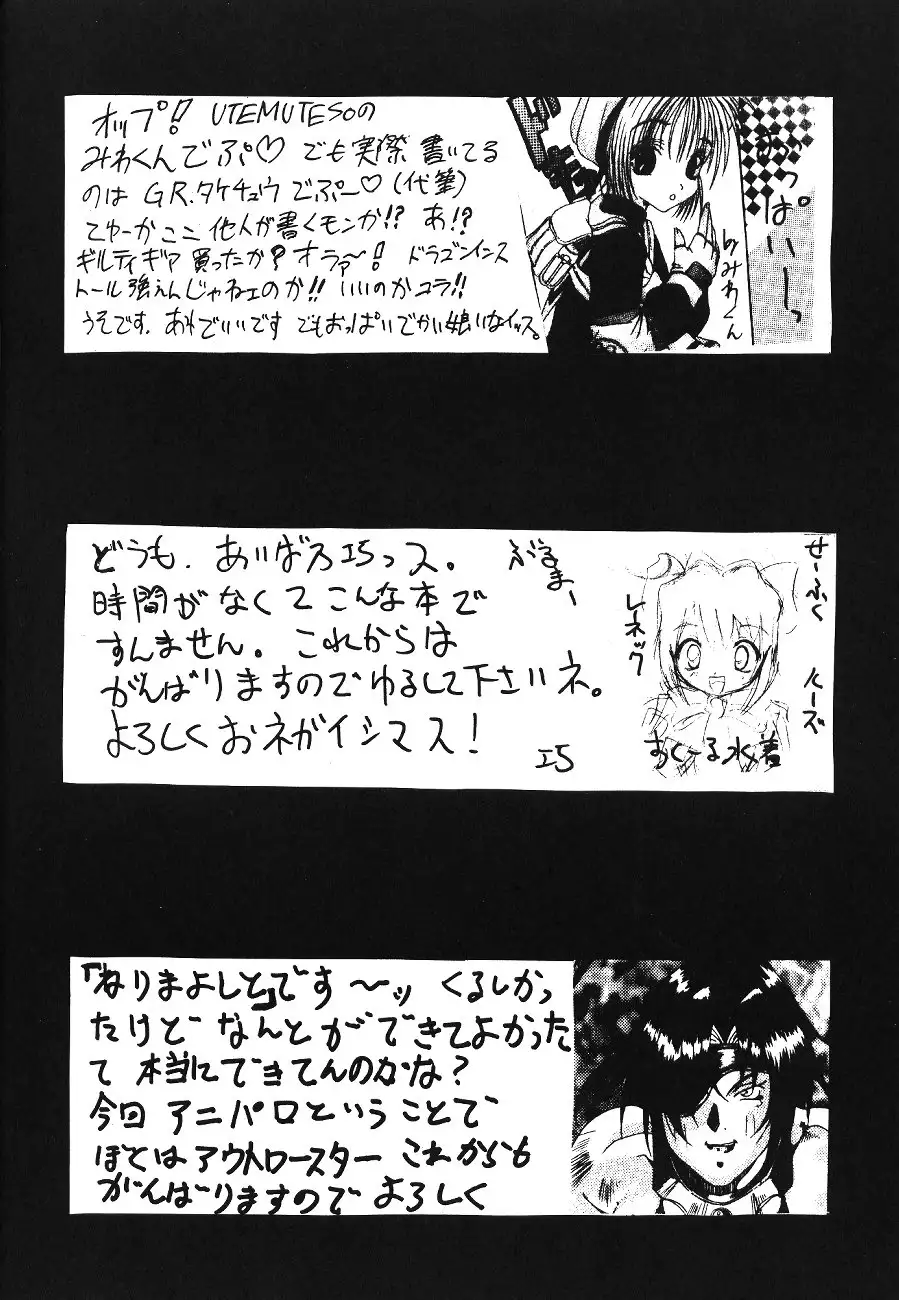 オップ! UTEMUTESOの
みわくんでぷ♡ でも実際 書いてる
のは G.R.タケチュウ でぷー♡(代筆)
てゆーかここ 他人が書くモンか!? あ!?
ギルティギア 買ったか? オラァ〜! ドラゴンインス
トール強えんじゃねェのか!! いいのかコラ!!
うそです. あれでいいです でもおっぱいでかい娘いなイッス。
おっぱい〜っ
byみわくん
どうも. あいば乃巧っス。
時間がなくてこんな本で
すんません。 これからは
がんばりますのでゆるして下さいネ。
よろしくおネガイシマス!
巧
ぶるまー
レーネック
せーふく
ルーズ
すくーる水着
「ねりまよしと」です 〜ッ くるしかっ
たけど なんとができてよかった
て 本当にできてんのかな?
今回 アニパロということで
ぼくはアウトロースター これからも
がんばりますので よろしく